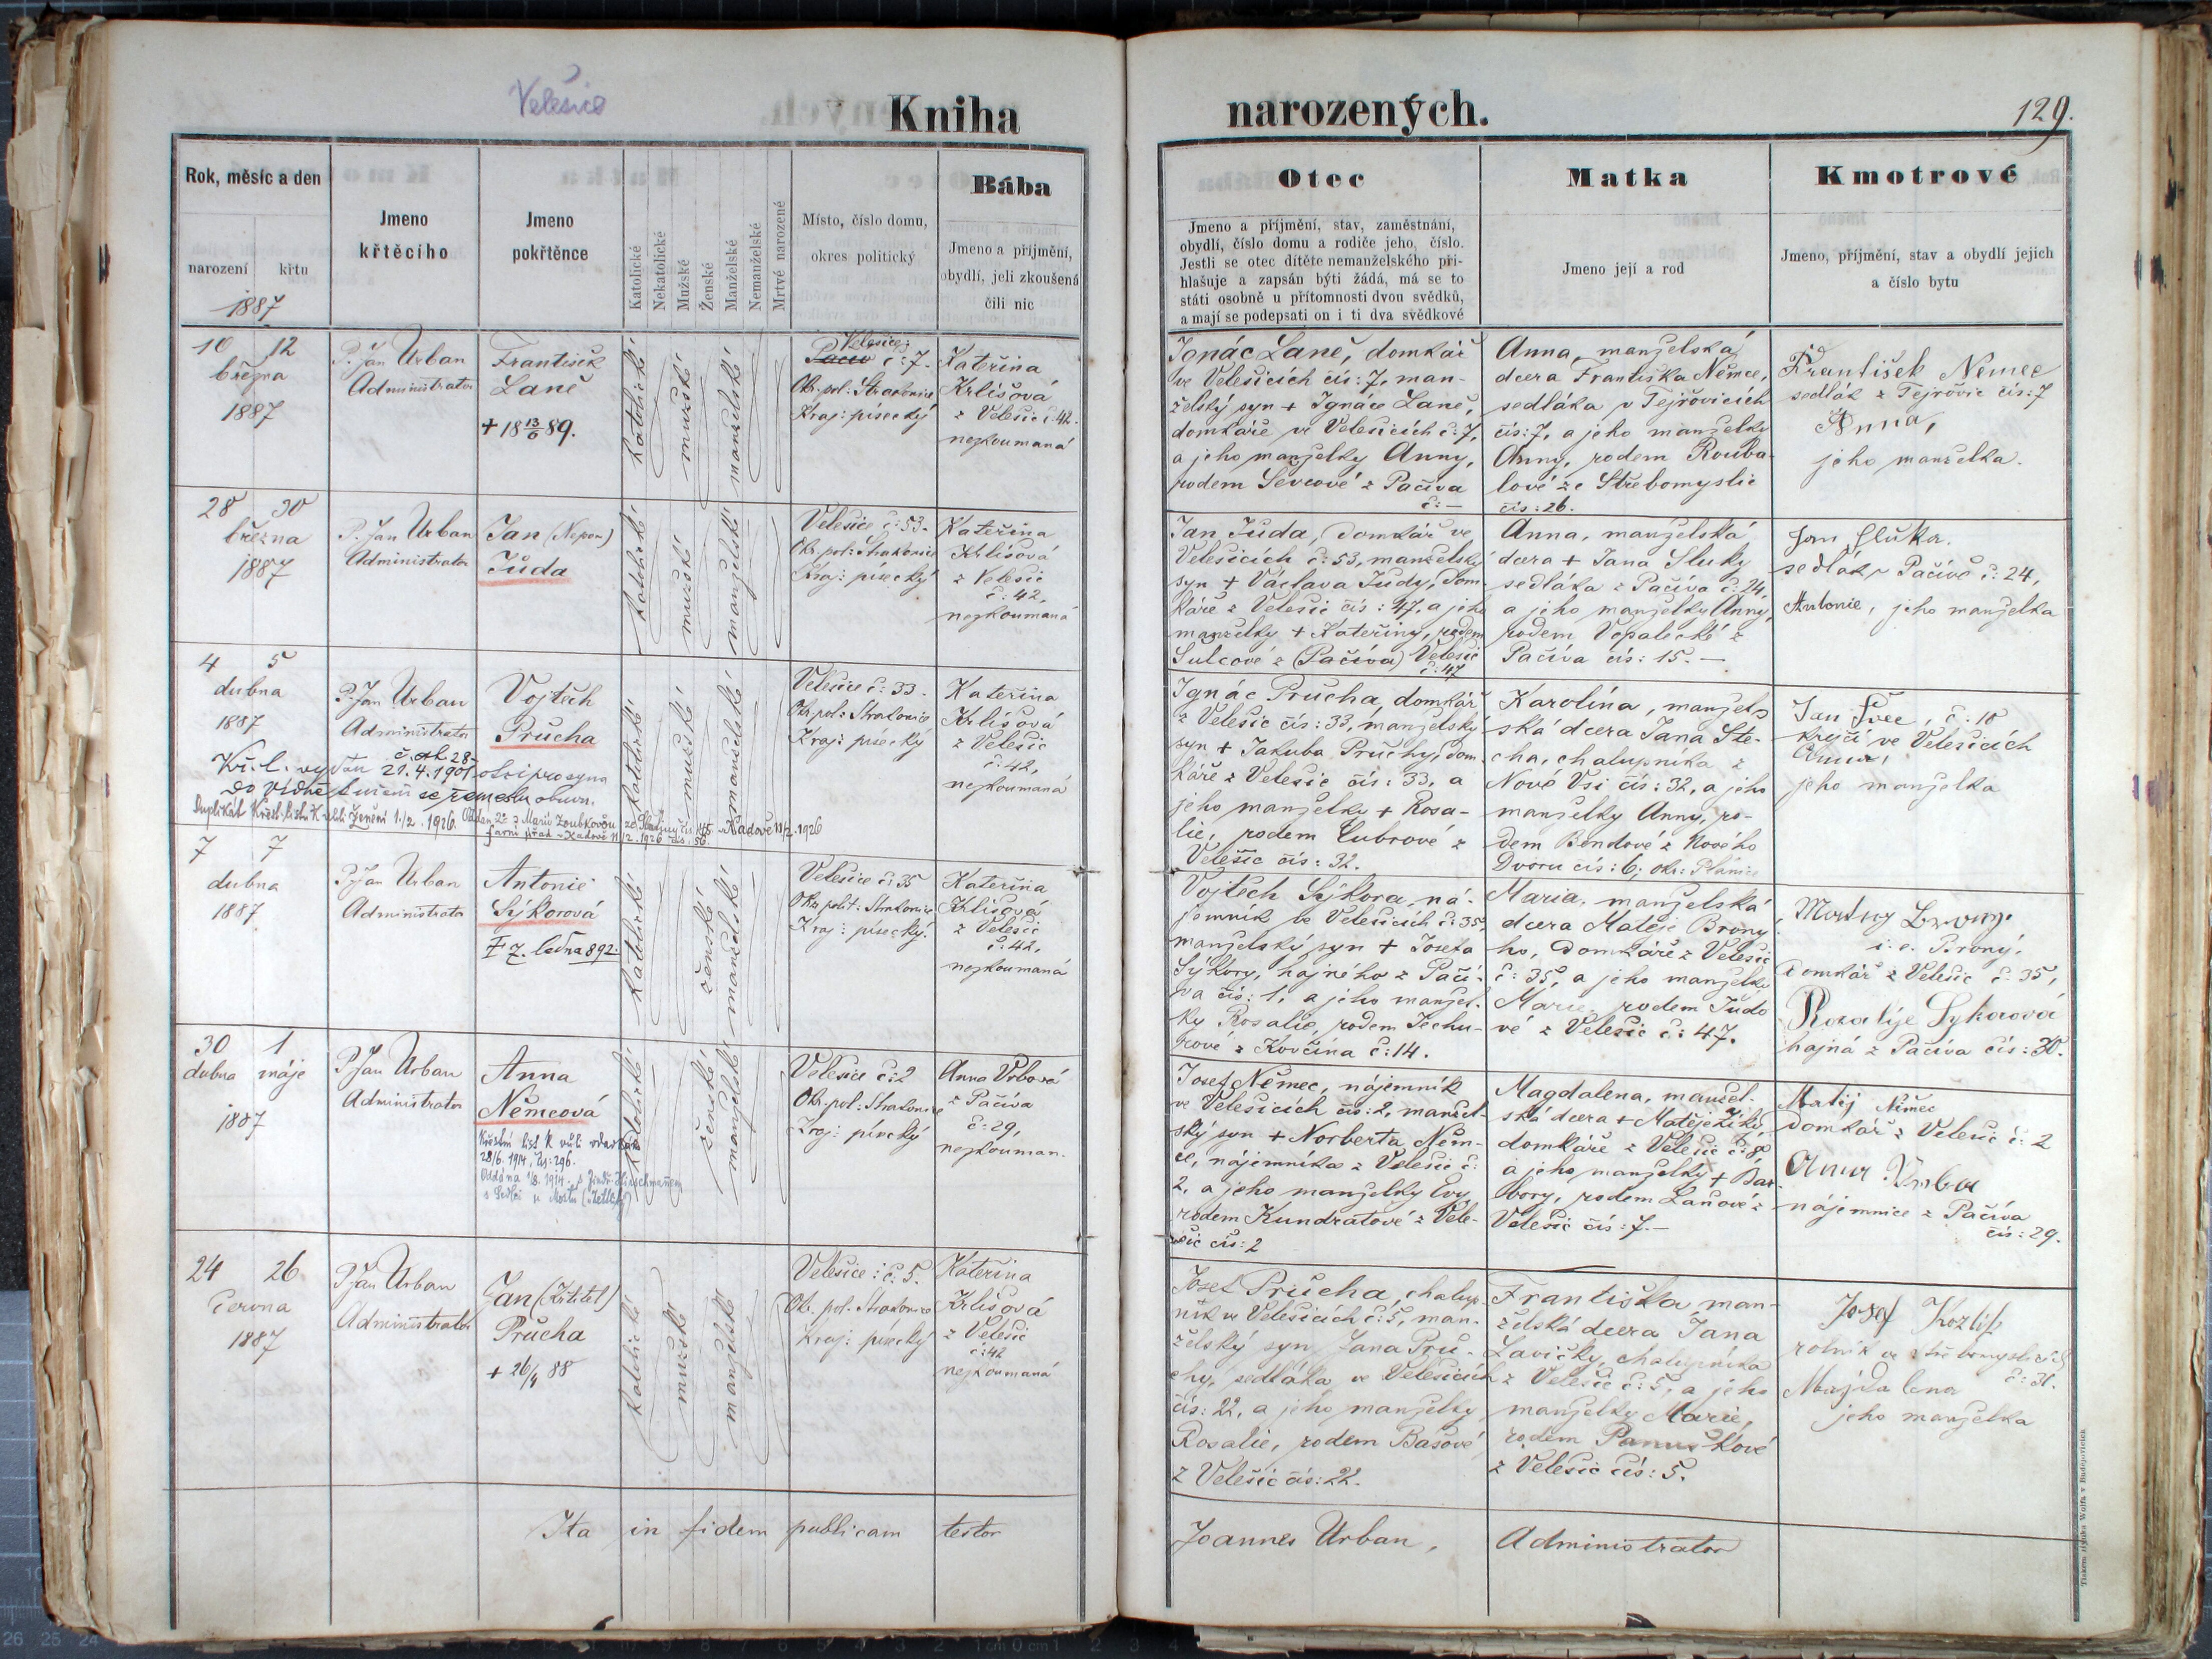 Velešice
Kniha
narozených.
129.
Rok, měsíc a den
narození
křtu
1887
Jmeno
křtěcího
Jmeno
pokřtěnce
Katolické
Nekatolické
Mužské
Ženské
Manželské
Nemanželské
Mrtvé narozené
Místo, číslo domu,
okres politický
Bába
Jmeno a příjmění,
obydlí, jeli zkoušená
čili nic
Otec
Jmeno a příjmění, stav, zaměstnání,
obydlí, číslo domu a rodiče jeho, číslo.
Jestli se otec dítěte nemanželského při-
hlašuje a zapsán býti žádá, má se to
státi osobně u přítomnosti dvou svědků,
a mají se podepsati on i ti dva svědkové
Matka
Jmeno její a rod
Kmotrové
Jmeno, příjmění, stav a obydlí jejich
a číslo bytu
10 12
března
1887
P. Jan Urban
Administrator
František
Laně
+ 18 13/6 89.
katolické
mužské
manželské
Velešice
č: 7.
Okr. pol: Strakonice
Kraj: písecký
Kateřina
Krlišová
z Velešic č: 42.
nezkoumaná
Ignác Laně, domkář
ve Velešicích čís: 7, man-
želský syn + Ignáce Laně,
domkáře ve Velešicích č: 7,
a jeho manželky Anny,
rodem Ševcové z Pačiva
č: —
Anna, manželská
dcera Františka Němce,
sedláka v Tejřovicích
čís: 7, a jeho manželky
Anny, rodem Rouba-
lové ze Střebomyslic
čís: 26.
František Němec
sedlák z Tejřovic čís: 7
Anna,
jeho manželka.
28 30
března
1887
P. Jan Urban
Administrator
Jan (Nepom)
Júda
katolické
mužské
manželské
Velešice č: 53.
Okr. pol: Strakonice
Kraj: písecký
Kateřina
Krlišová
z Velešic
č: 42,
nezkoumaná
Jan Júda, domkář ve
Velešicích č: 53, manželský
syn + Václava Júdy, dom-
káře z Velešic čís: 47, a jeho
manželky + Kateřiny, rodem
Šulcové z (Pačiva) Velešic
č: 47
Anna, manželská
dcera + Jana Sluky
sedláka z Pačiva č: 24,
a jeho manželky Anny,
rodem Vopalecké z
Pačiva čís: 15. —
Jan Sluka.
sedlák v Pačivě č: 24,
Antonie, jeho manželka
4 5
dubna
1887
P. Jan Urban
Administrator
Vojtěch
Průcha
katolické
mužské
manželské
Velešice č: 33.
Okr. pol: Strakonice
Kraj: písecký
Kateřina
Krlišová
z Velešic
č: 42,
nezkoumaná
Kř. l. vydán 21. 4. 1901 otci pro syna
do Vídně
Duplikát Křest. listu 1./2. 1926.
Ignác Průcha, domkář
z Velešic čís: 33, manželský
syn + Jakuba Průchy, dom-
káře z Velešic čís: 33, a
jeho manželky + Rosa-
lie, rodem Cubrové z
Velešic čís: 32.
Karolína, manžel-
ská dcera Jana Ště-
cha, chalupníka z
Nové Vsi čís: 32, a jeho
manželky Anny, ro-
dem Bendové z Nového
Dvoru čís: 6; okr: Plánice
Jan Švec, č: 10
krejčí ve Velešicích
Anna,
jeho manželka
7 7
dubna
1887
P. Jan Urban
Administrator
Antonie
Sýkorová
7. ledna 892.
katolické
ženské
manželské
Velešice č: 35
Okr. polit: Strakonice
Kraj: písecký.
Kateřina
Krlišová
z Velešic
č: 42,
nezkoumaná
Vojtěch Sýkora, ná-
jemník ve Velešicích č: 35,
manželský syn + Josefa
Sýkory, hajného z Pači-
va čís: 1, a jeho manžel-
ky Rosalie, rodem Jechu-
rové z Kovčína č: 14.
Maria, manželská
dcera Matěje Brony-
ho, domkáře z Velešic
č: 35, a jeho manželky
Marie, rodem Júdo-
vé z Velešic č: 47.
i. e. Broný,
domkář z Velešic č: 35,
Rozalije Sykorová
hajná z Pačiva čís: 30.
30 1
dubna máje
1887
P. Jan Urban
Administrator
Anna
Němcová
28/6. 1914
Oddána 1/8. 1914
katolické
ženské
manželské
Velešice č: 2
Okr. pol: Strakonice
Kraj: písecký
Anna Vrbová
z Pačiva
č: 29,
nezkouman.
Josef Němec, nájemník
ve Velešicích čís: 2, manžel-
ský syn + Norberta Něm-
ce, nájemníka z Velešic č:
2, a jeho manželky Evy,
rodem Kundratové z Vele-
šic čís: 2
Magdalena, manžel-
ská dcera + Matěje
domkáře z Velešic č: 8,
a jeho manželky + Bar-
bory, rodem Laňové z
Velešic čís: 7. —
Matěj Němec
domkář z Velešic č: 2
Anna Vrba
nájemnice z Pačiva
čís: 29.
24 26
června
1887
P. Jan Urban
Administrator
Jan (Křtitel)
Průcha
+ 26/4 88
katolické
mužské
manželské
Velešice: č. 5.
Okr. pol. Strakonice
Kraj: písecký
Kateřina
Krlišová
z Velešic
č: 42
nezkoumaná
Josef Průcha, chalup-
ník ve Velešicích č: 5, man-
želský syn Jana Prů-
chy, sedláka ve Velešicích
čís: 22, a jeho manželky
Rosalie, rodem Bašové
z Velešic čís: 22.
Františka, man-
želská dcera Jana
Lavičky, chalupníka
z Velešic č: 5, a jeho
manželky Marie,
rodem Panuškové
z Velešic čís: 5.
Josef Kozlík
rolník ve Střebomyslicích
č: 31.
Majdalena
jeho manželka
Ita in fidem publicam testor
Joannes Urban, Administrator
Tiskem Hynka Wolfa v Budějovicích